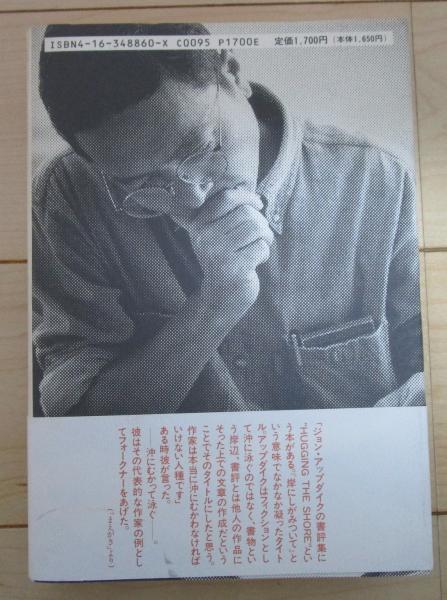 ISBN4-16-348860-X C0095 P1700E 定価1,700円(本体1,650円)
「ジョン・アップダイクの書評集に
"HUGGING THE SHORE"とい
う本がある。"岸にしがみついて"と
いう意味でなかなか凝ったタイト
ル。アップダイクはフィクションとし
て沖に泳ぐのではなく、書物とい
う岸辺、書評とは他人の作品に
そった上での文章の作成だという
ことでそのタイトルにしたと思う。
作家は本当に沖にむかわなければ
いけない人種です」
ある時彼が言った。
――沖にむかって泳ぐ――。
彼はその代表的な作家の例とし
てフォークナーをあげた。
(「まえがき」より)